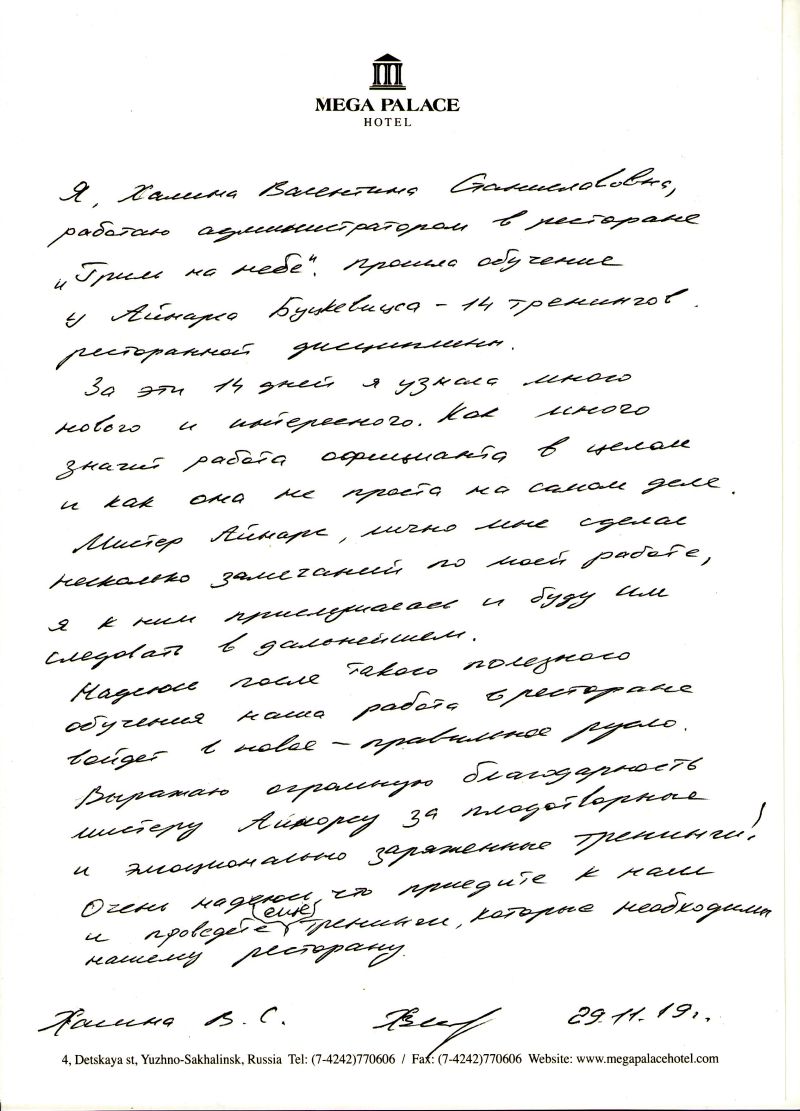 MEGA PALACE
HOTEL
Я, Халина Валентина Станиславовна,
работаю администратором в ресторане
„Грим на небе". прошла обучение
у Айнарса Буцкевицса – 14 тренингов
ресторанной дисциплины.
За эти 14 дней я узнала много
нового и интересного. Как много
значит работа официанта в целом
и как она не проста на самом деле.
Мистер Айнарс, лично мне сделал
несколько замечаний по моей работе,
я к ним прислушалась и буду им
следовать в дальнейшем.
Надеюсь после такого полезного
обучения наша работа в ресторане
войдет в новое – правильное русло.
Выражаю огромную благодарность
мистеру Айнарсу за плодотворные
и эмоционально заряженные тренинги!
Очень надеюсь, что приедите к нам
и проведете (еще) тренинги, которые необходимы
нашему ресторану.
Халина В. С. 29.11.19г.
4, Detskaya st, Yuzhno-Sakhalinsk, Russia Tel: (7-4242)770606 / Fax: (7-4242)770606 Website: www.megapalacehotel.com